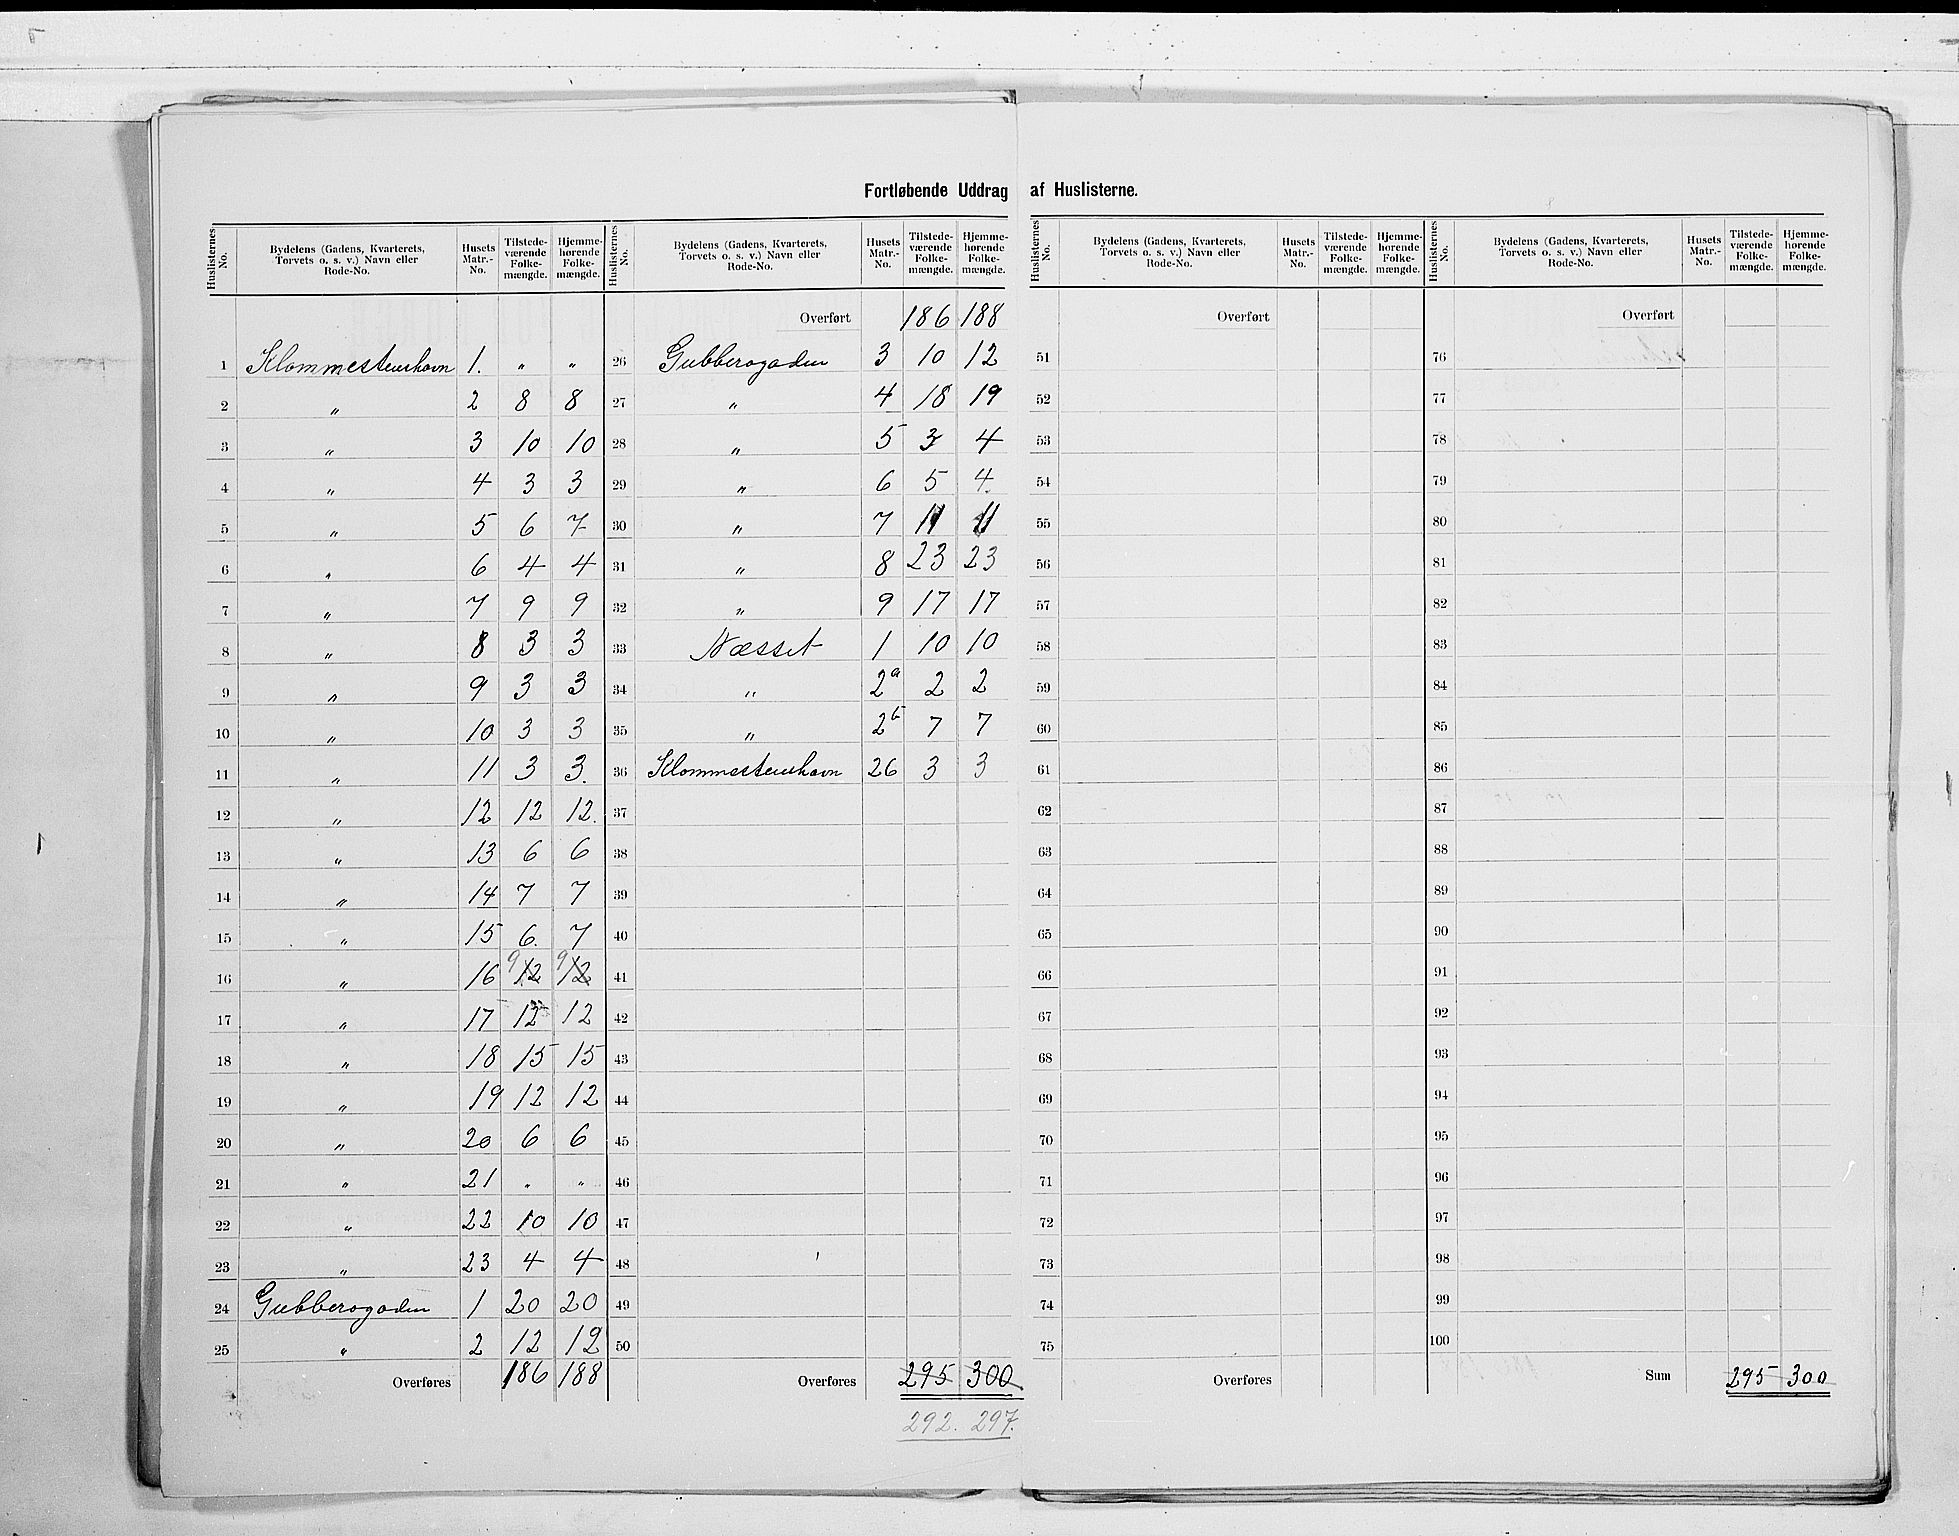 Fortløbende Uddrag af Huslisterne.
Huslisternes No. | Bydelens (Gadens, Kvarterets, Torvets o. s. v.) Navn eller Rode-No. | Husets Matr.-No. | Tilstedeværende Folkemængde. | Hjemmehørende Folkemængde.
1 Klommestenshavn 1. „ „
2 „ 2 8 8
3 „ 3 10 10
4 „ 4 3 3
5 „ 5 6 7
6 „ 6 4 4
7 „ 7 9 9
8 „ 8 3 3
9 „ 9 3 3
10 „ 10 3 3
11 „ 11 3 3.
12 „ 12 12 12.
13 „ 13 6 6
14 „ 14 7 7
15 „ 15 6. 7
16 „ 16 9 12 9 12
17 „ 17 12 12
18 „ 18 15 15
19 „ 19 12 12
20 „ 20 6 6
21 „ 21 „ „
22 „ 22 10 10
23 „ 23 4 4
24 Gubberogaden 1 20 20
25 „ 2 12 12
Overføres 186 188
Huslisternes No. | Bydelens (Gadens, Kvarterets, Torvets o. s. v.) Navn eller Rode-No. | Husets Matr.-No. | Tilstedeværende Folkemængde. | Hjemmehørende Folkemængde.
Overført 186 188
26 Gubberogaden 3 10 12
27 „ 4 18 19
28 „ 5 3 4
29 „ 6 5 4.
30 „ 7 11 11
31 „ 8 23 23
32 „ 9 17 17
33 Næsset 1 10 10
34 „ 2a 2 2
35 „ 2b 7 7
36 Klommestenshavn 26 3 3
37
38
39
40
41
42
43
44
45
46
47
48
49
50
Overføres 295 300
292. 297.
Huslisternes No. | Bydelens (Gadens, Kvarterets, Torvets o. s. v.) Navn eller Rode-No. | Husets Matr.-No. | Tilstedeværende Folkemængde. | Hjemmehørende Folkemængde.
Overført
51
52
53
54
55
56
57
58
59
60
61
62
63
64
65
66
67
68
69
70
71
72
73
74
75
Overføres
Huslisternes No. | Bydelens (Gadens, Kvarterets, Torvets o. s. v.) Navn eller Rode-No. | Husets Matr.-No. | Tilstedeværende Folkemængde. | Hjemmehørende Folkemængde.
Overført
76
77
78
79
80
81
82
83
84
85
86
87
88
89
90
91
92
93
94
95
96
97
98
99
100
Sum 295 300